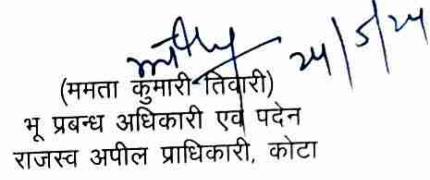 24/5/24
(ममता कुमारी तिवारी)
भू प्रबन्ध अधिकारी एवं पदेन
राजस्व अपील प्राधिकारी, कोटा